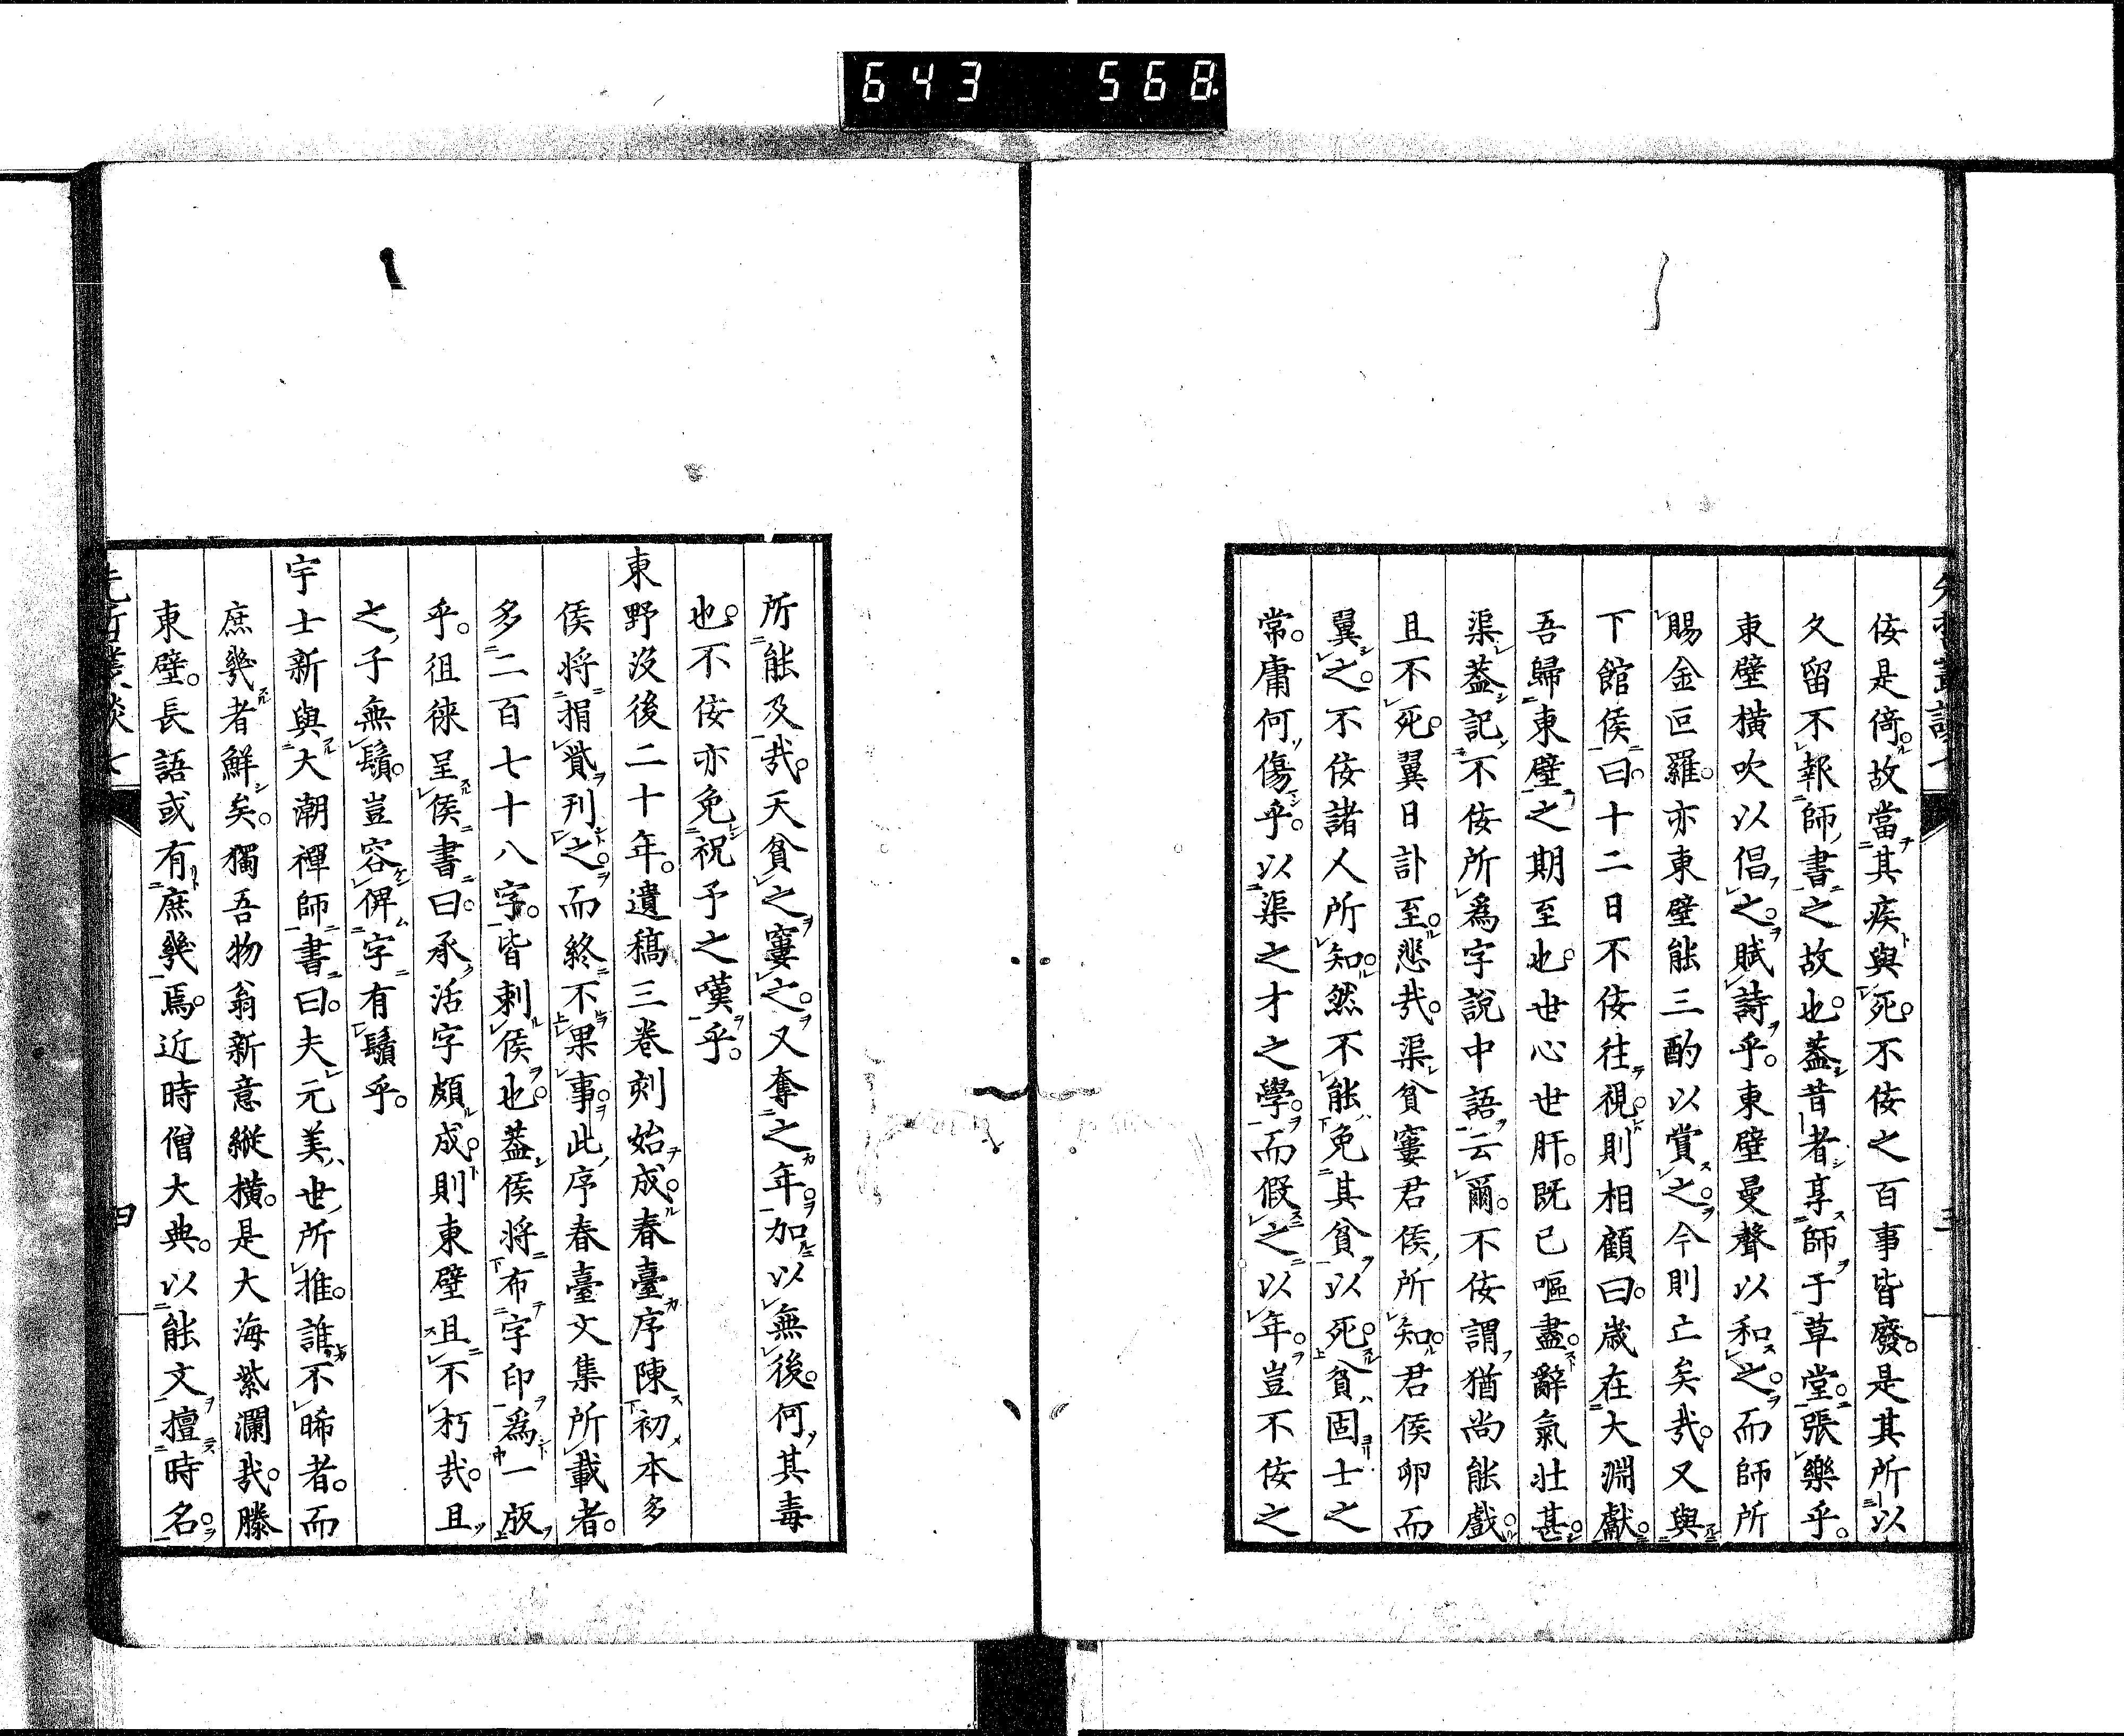 643 568
侫是倚。故當其疾與死。不侫之百事皆廢。是其所以
久留不報師書之故也。葢昔者享師于草堂。張樂乎。
東壁橫吹以倡之。賦詩乎。東壁曼聲以和之。而師所
賜金叵羅。亦東壁能三酌以賞之。今則亡矣哉。又與
下館侯曰。十二日不侫往視。則相顧曰。歲在大淵獻。
吾歸東壁之期至也。世心世肝。既已嘔盡。辭氣壯甚。
渠葢記不侫所爲字說中語云爾。不侫謂猶尚能戲。
且不死。翼日訃至。悲哉。渠貧窶君侯所知。君侯卵而
翼之。不侫諸人所知。然不能免其貧以死。貧固士之
常。庸何傷乎。以渠之才之學。而假之以年。豈不侫之
所能及哉。天貧之窶之。又奪之年。加以無後。何其毒
也。不侫亦免祝予之嘆乎。
東野沒後二十年。遺稿三卷刻始成。春臺序陳初本多
侯將捐貲刊之。而終不果事。此序春臺文集所載者。
多二百七十八字。皆刺侯也。葢侯將布字印爲一版
乎。徂徠呈侯書曰。承活字頗成。則東壁且不朽哉。且
之子無鬚。豈容俾字有鬚乎。
宇士新與大潮禪師書曰。夫元美世所推。誰不晞者。而
庶幾者鮮矣。獨吾物翁新意縱橫。是大海紫瀾哉。滕
東壁。長語或有庶幾焉。近時僧大典。以能文擅時名。
先哲叢談七
四